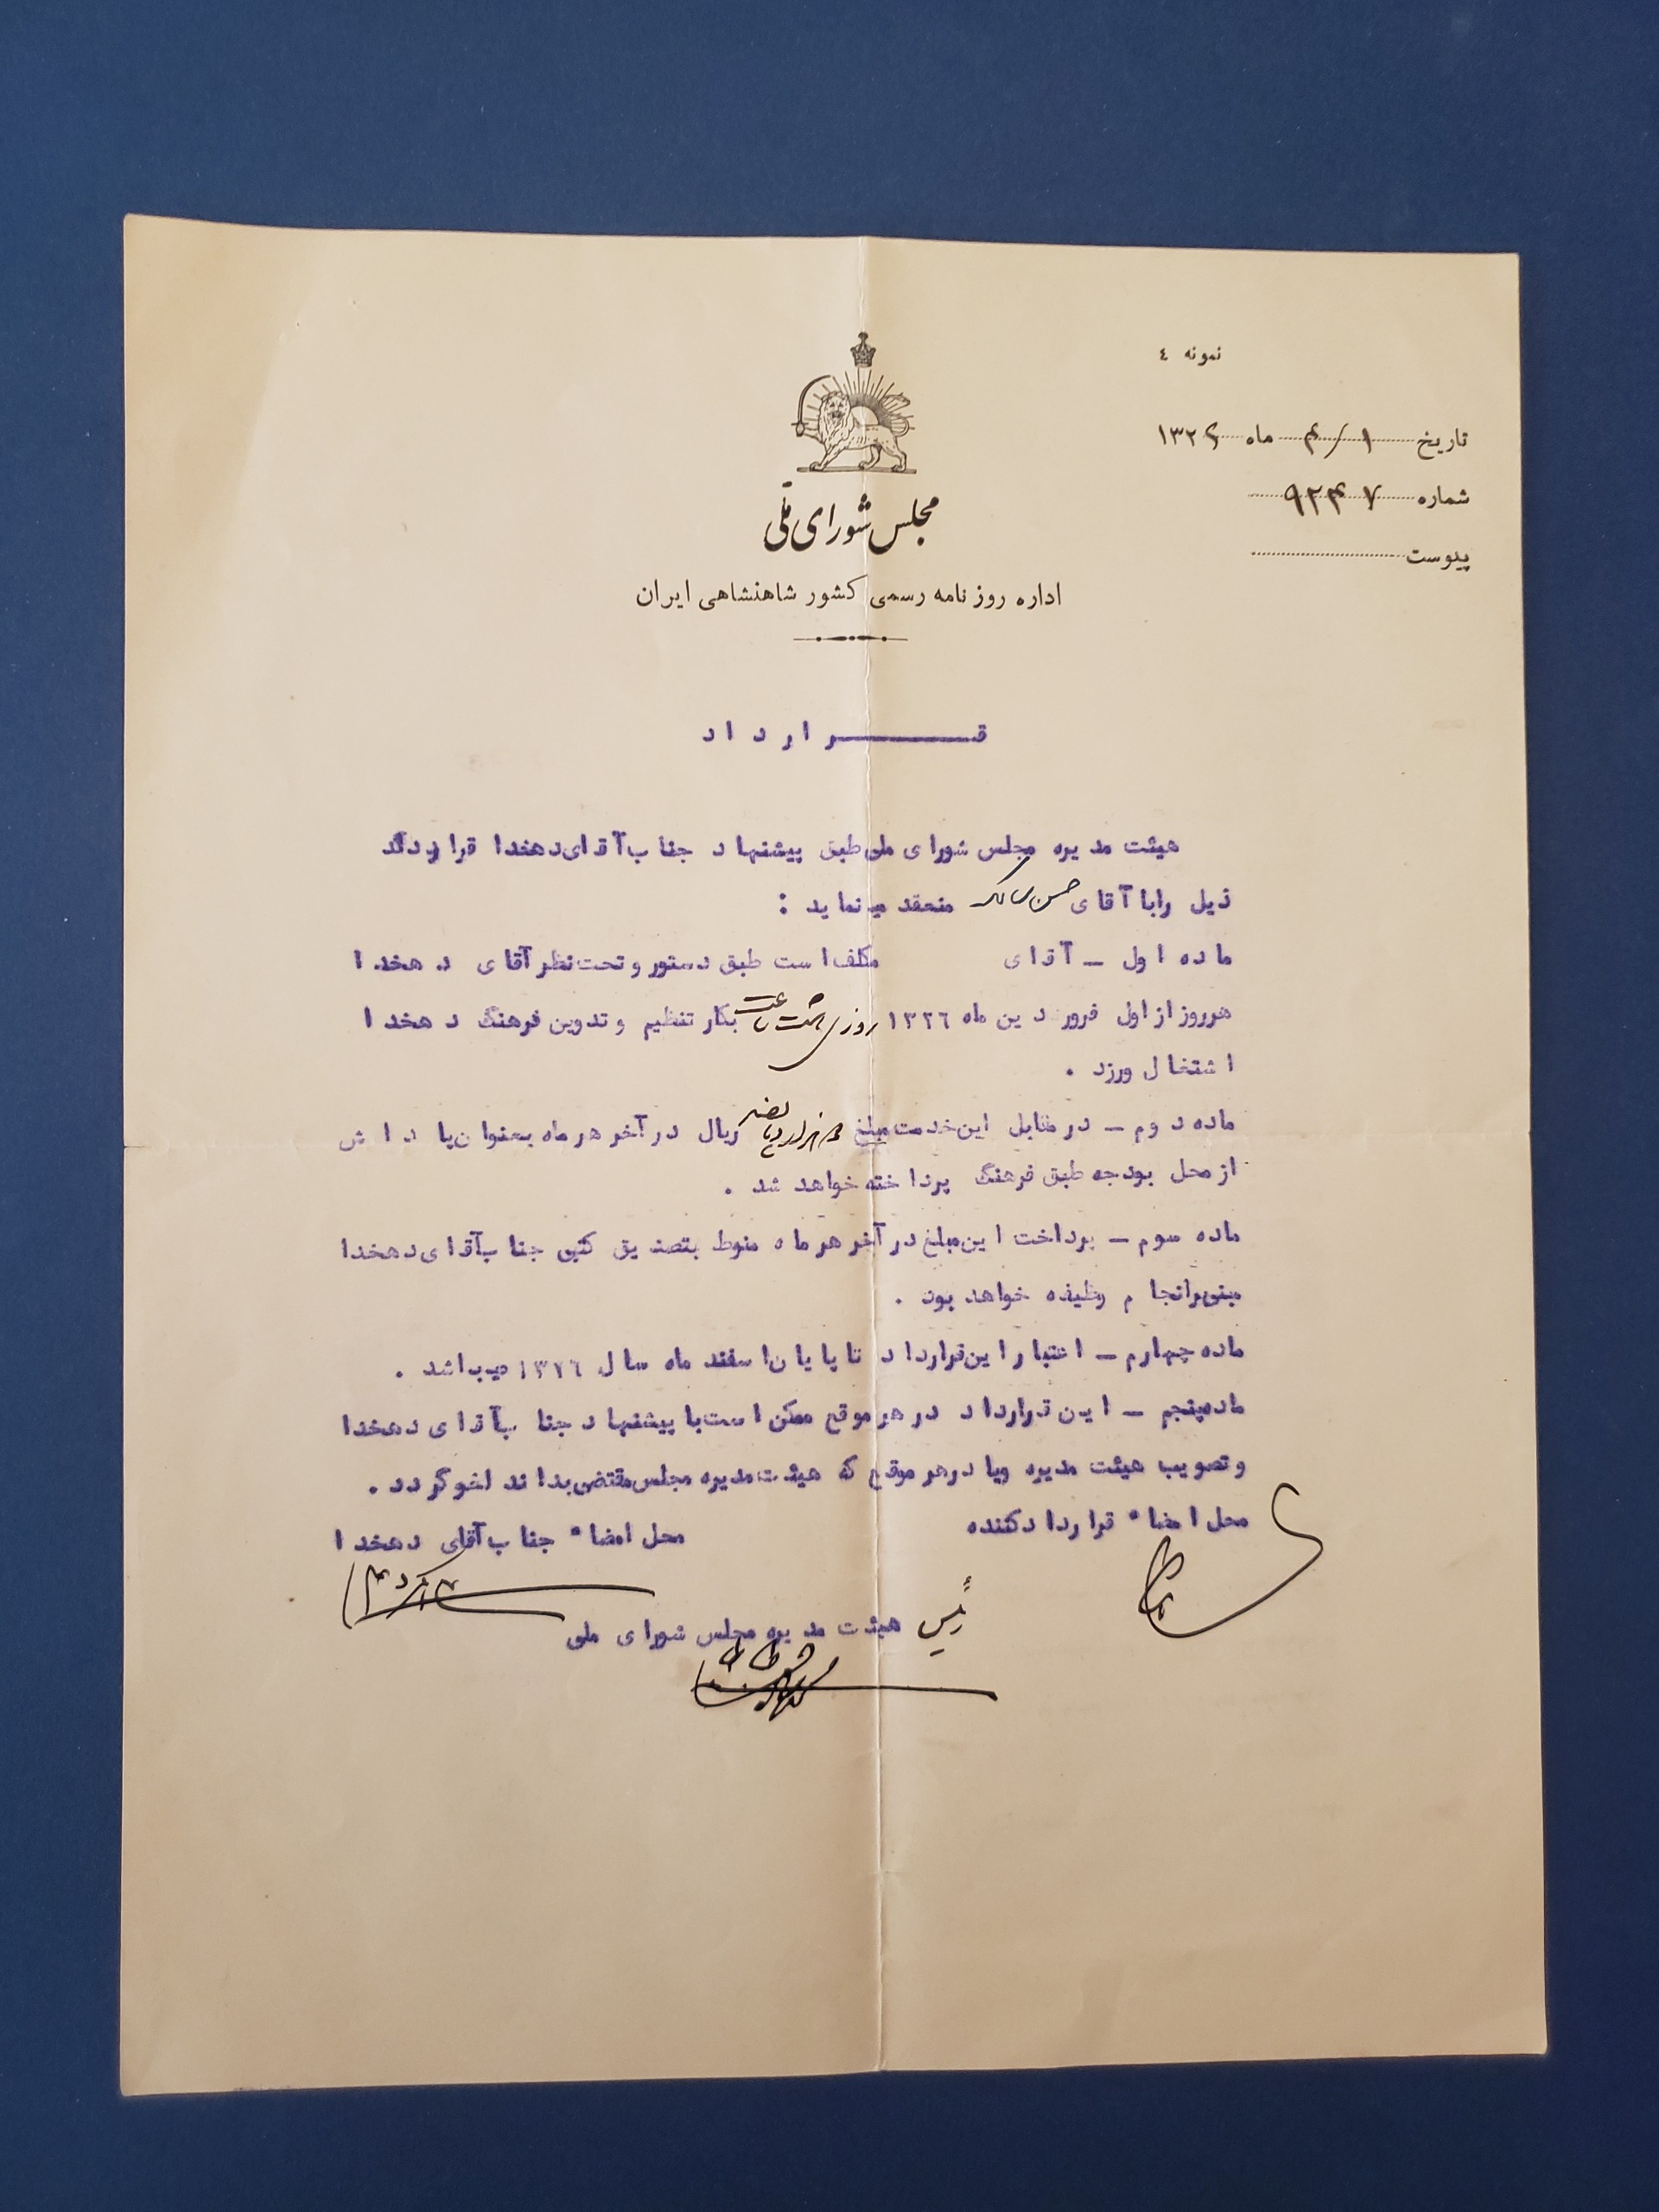 نمونه ٤
تاریخ ۱/۴ ماه ۱۳۲۶
شماره ۹۲۴۷
پیوست
مجلس شورای ملّی
اداره روزنامه رسمی کشور شاهنشاهی ایران
قرارداد
هیئت مدیره مجلس شورای ملی طبق پیشنهاد جناب آقای دهخدا قرارداد
ذیل را با آقای حسن منعقد مینماید :
ماده اول ـ آقای مکلف است طبق دستور و تحت نظر آقای دهخدا
هر روز از اول فروردین ماه ۱۳۲٦ روزی هشت ساعت بکار تنظیم و تدوین فرهنگ دهخدا
اشتغال ورزد .
ماده دوم ـ در مقابل این خدمت مبلغ ریال در آخر هر ماه بعنوان پاداش
از محل بودجه طبق فرهنگ پرداخته خواهد شد .
ماده سوم ـ پرداخت این مبلغ در آخر هر ماه منوط بتصدیق کتبی جناب آقای دهخدا
مبنی بر انجام وظیفه خواهد بود .
ماده چهارم ـ اعتبار این قرارداد تا پایان اسفند ماه سال ۱۳۲٦ میباشد .
ماده پنجم ـ این قرارداد در هر موقع ممکن است با پیشنهاد جناب آقای دهخدا
و تصویب هیئت مدیره ویا در هر موقع که هیئت مدیره مجلس مقتضی بداند لغو گردد .
محل امضاء قرارداد کننده محل امضاء جناب آقای دهخدا
رئیس هیئت مدیره مجلس شورای ملی